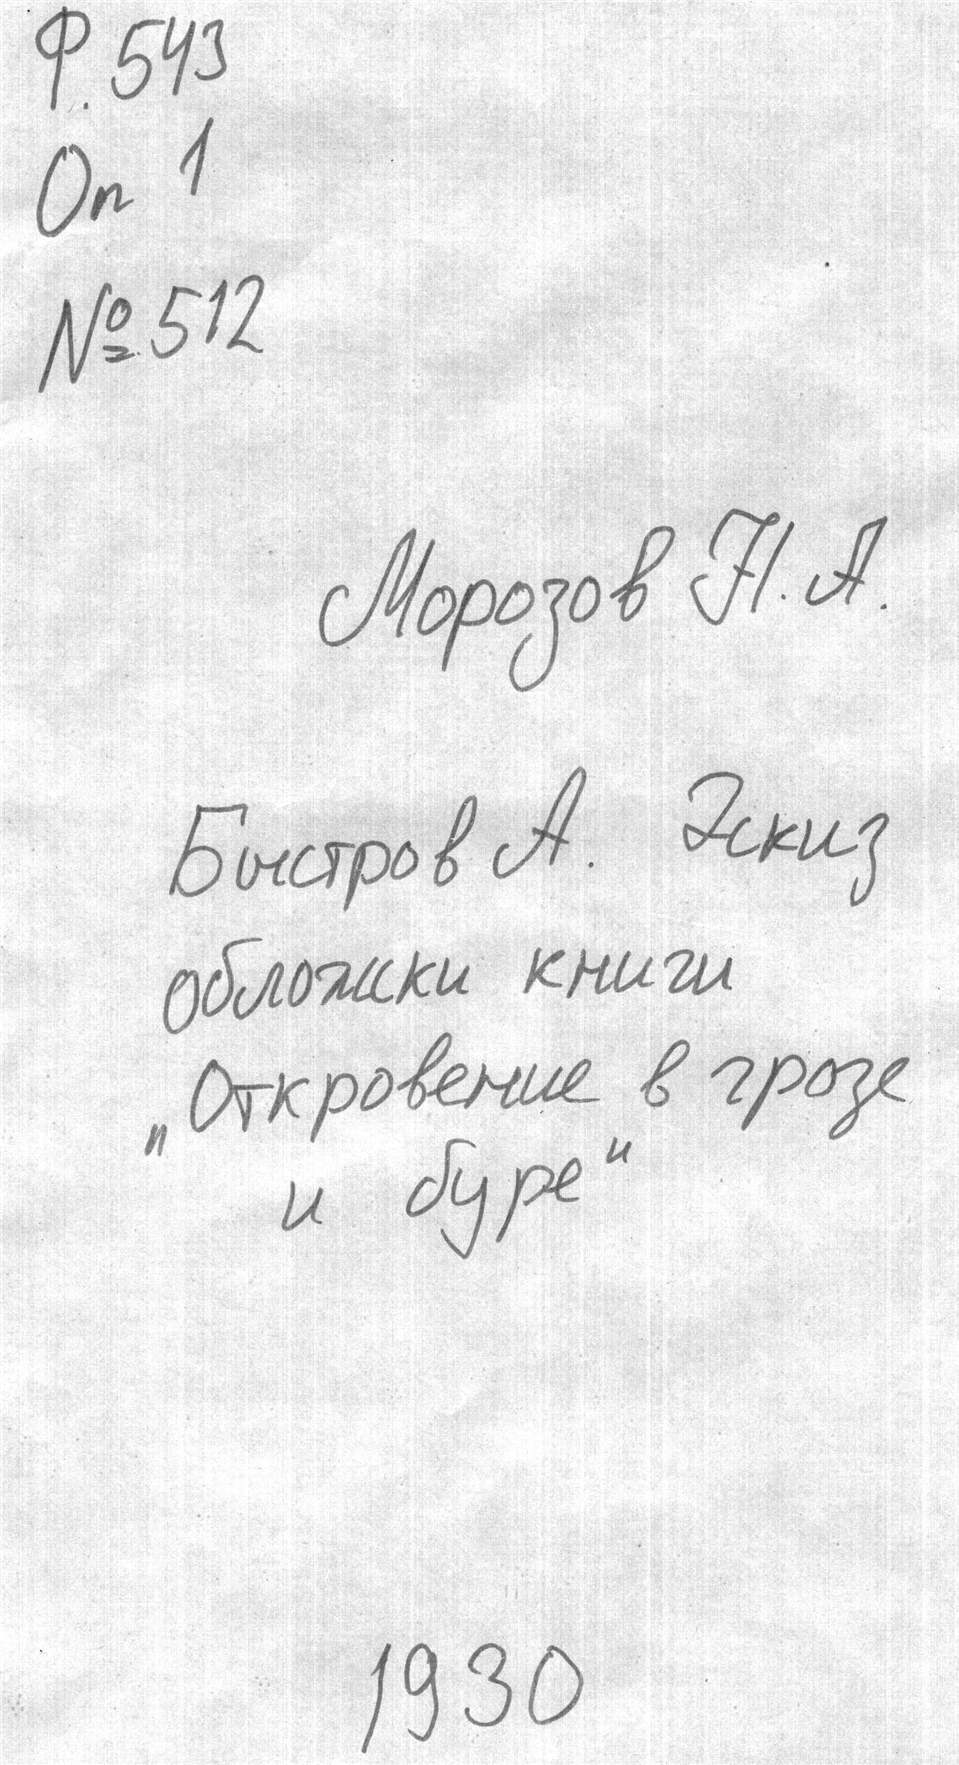 Ф. 543
Оп 1
№ 512
Морозов Н. А.
Быстров А. Эскиз
обложки книги
„Откровение в грозе
и буре"
1930